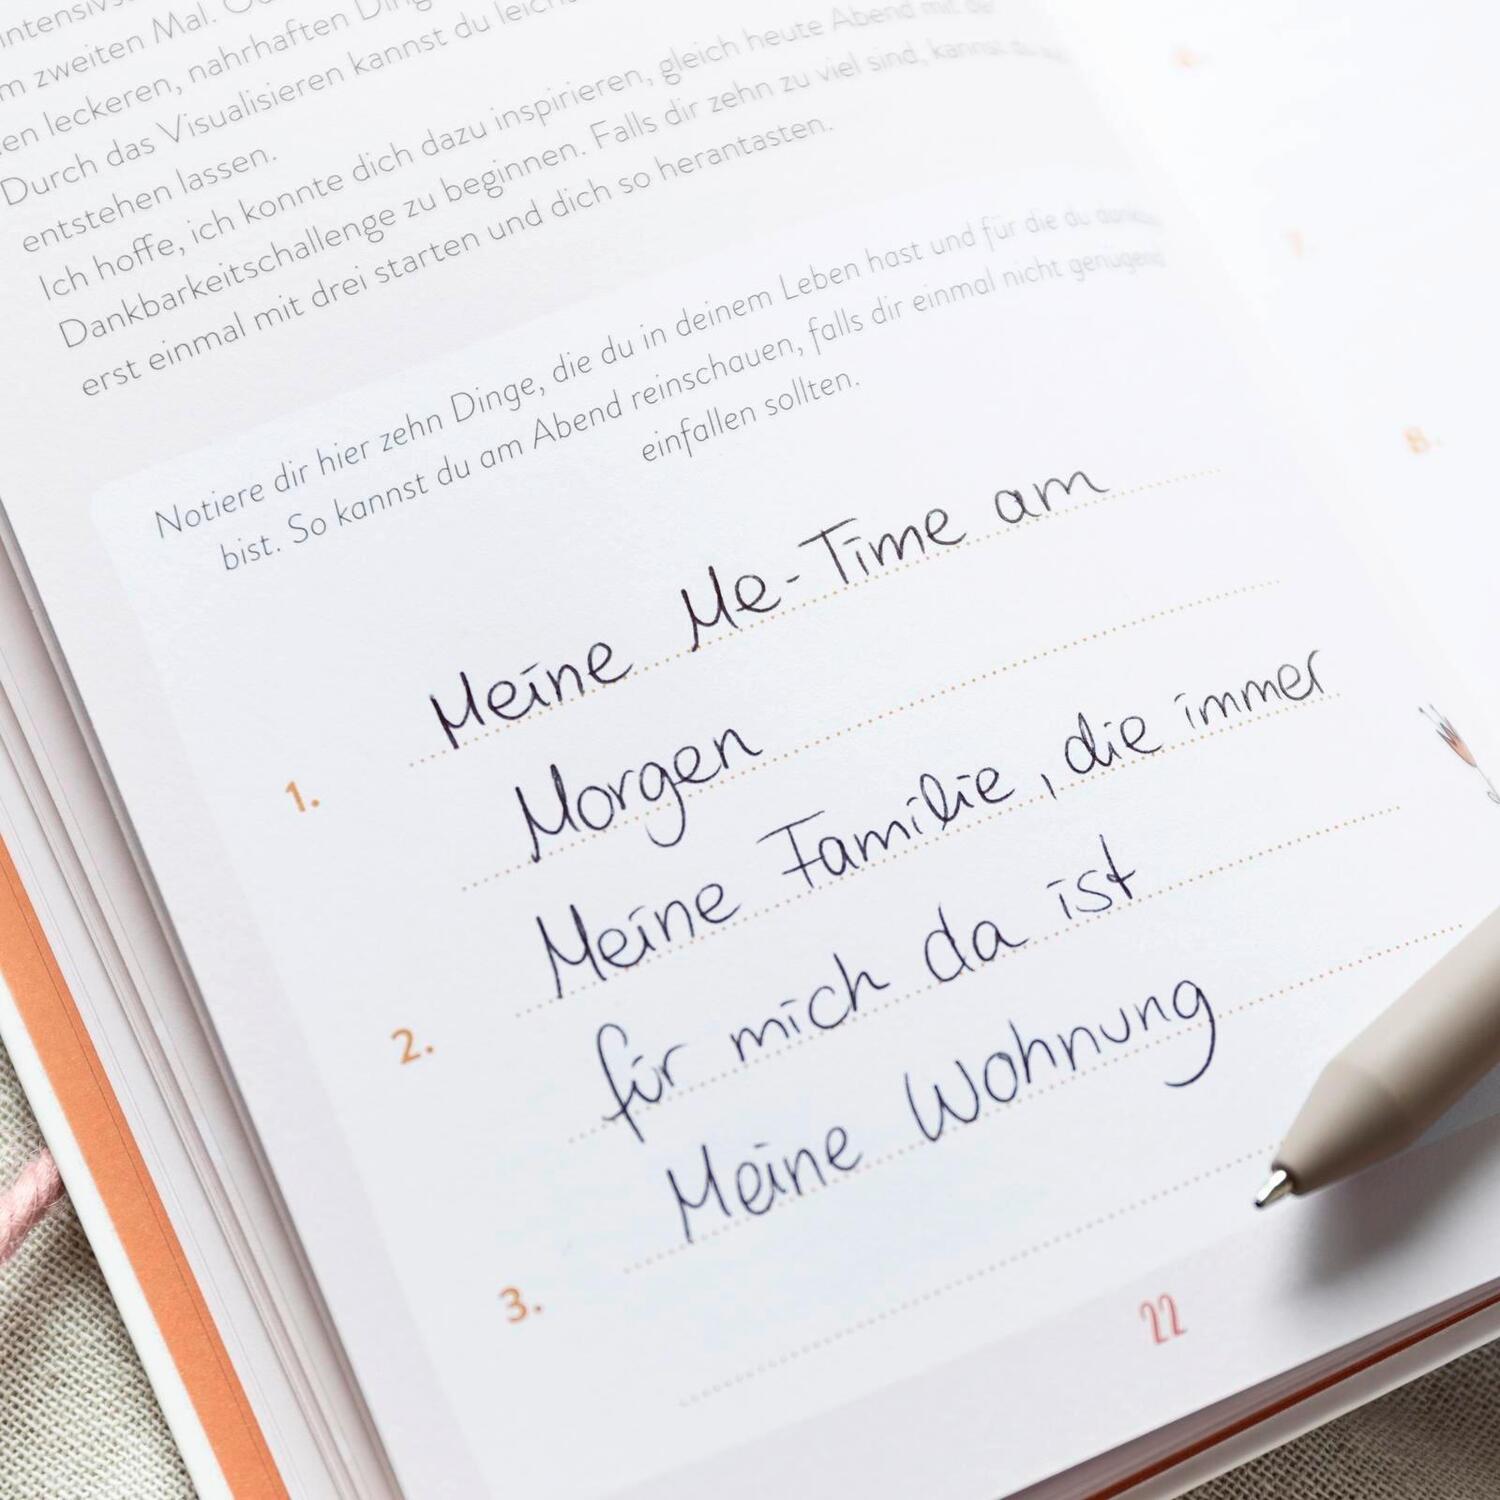 zweiten Mal.
leckeren, nahrhaften
Durch das Visualisieren kannst du
entstehen lassen.
Ich hoffe, ich konnte dich dazu inspirieren, gleich heute Abend mit der
Dankbarkeitschallenge zu beginnen. Falls dir zehn zu viel sind, kannst du
erst einmal mit drei starten und dich so herantasten.
Notiere dir hier zehn Dinge, die du in deinem Leben hast und für die du dankbar
bist. So kannst du am Abend reinschauen, falls dir einmal nicht genügend
einfallen sollten.
1. Meine Me-Time am
Morgen
2. Meine Familie, die immer
für mich da ist
3. Meine Wohnung
22
7.
8.